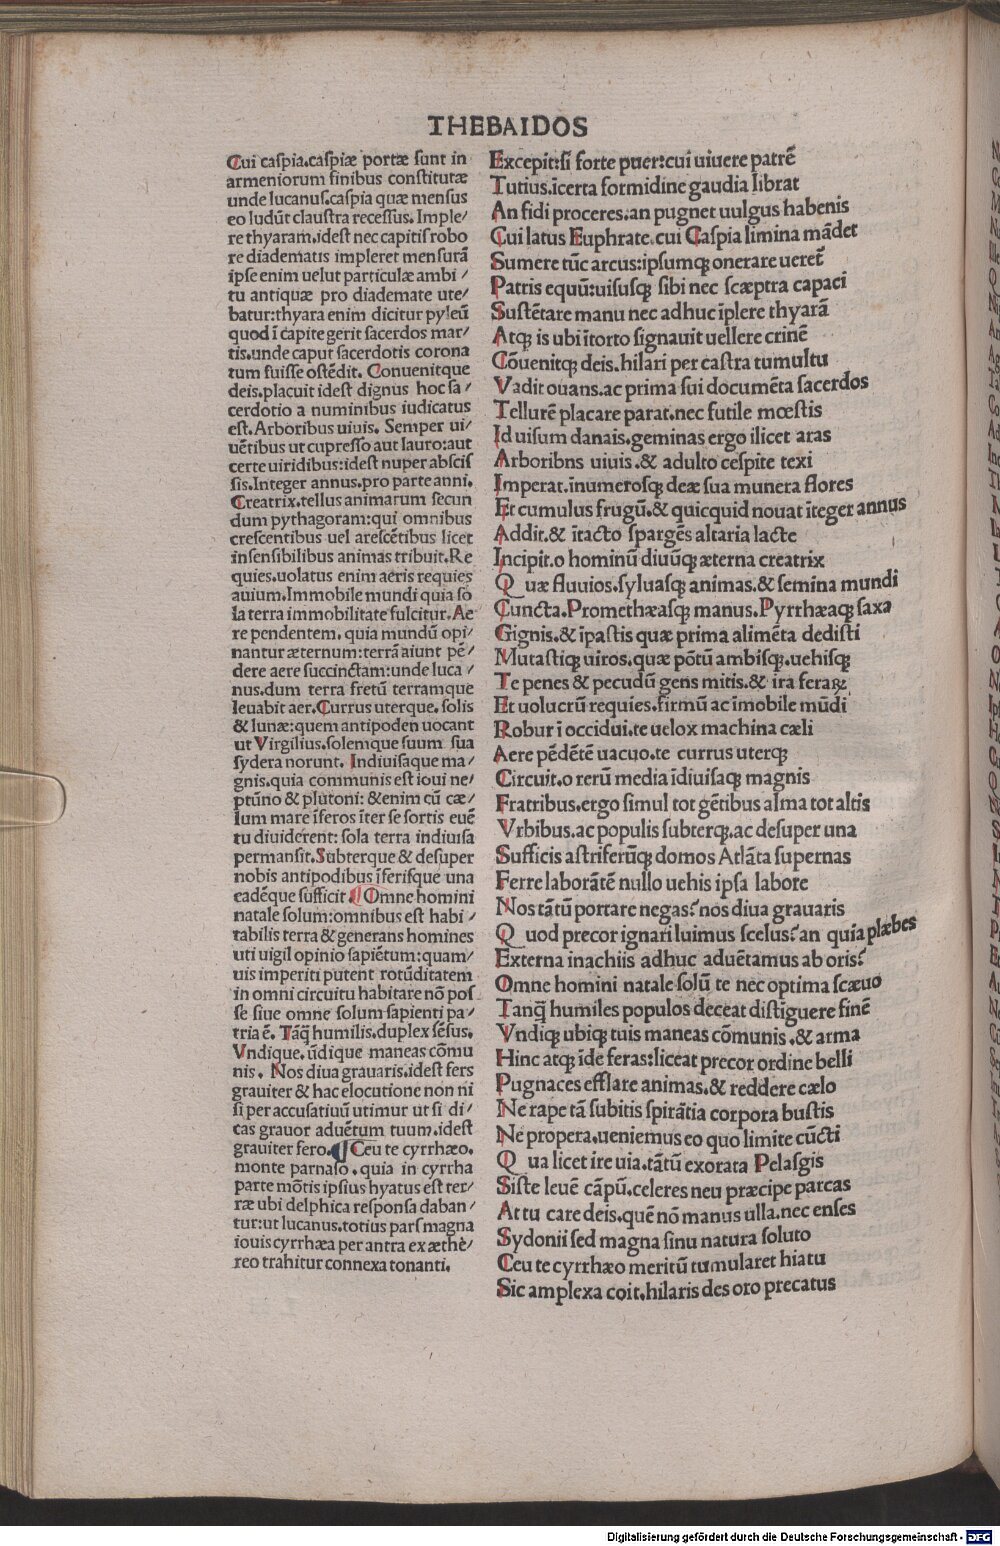 THEBAIDOS
Cui caspia.caspiæ portæ sunt in
armeniorum finibus constitutæ
unde lucanus.caspia quæ mensus
eo ludūt claustra recessus. Imple/
re thyaram.idest nec capitis robo
re diadematis impleret mensurā
ipse enim uelut particulæ ambi/
tu antiquæ pro diademate ute/
batur:thyara enim dicitur pyleū
quod ī capite gerit sacerdos mar/
tis.unde caput sacerdotis corona
tum fuisse ostēdit. Conuenitque
deis.placuit idest dignus hoc sa/
cerdotio a numinibus iudicatus
est. Arboribus uiuis. Semper ui/
uētibus ut cupresso aut lauro:aut
certe uiridibus:idest nuper abscis
sis.Integer annus.pro parte anni.
Creatrix.tellus animarum secun
dum pythagoram:qui omnibus
crescentibus uel arescētibus licet
insensibilibus animas tribuit.Re
quies.uolatus enim aeris requies
auium.Immobile mundi quia so
la terra immobilitate fulcitur.Ae
re pendentem. quia mundū opi/
nantur æternum:terrā aiunt pē/
dere aere succinctam:unde luca/
nus.dum terra fretū terramque
leuabit aer.Currus uterque. solis
& lunæ:quem antipoden uocant
ut Virgilius.solemque suum sua
sydera norunt. Indiuisaque ma/
gnis.quia communis est ioui ne/
ptūno & plutoni: & enim cū cæ/
lum mare īferos īter se sortis euē
tu diuiderent: sola terra indiuisa
permansit.Subterque & desuper
nobis antipodibus īferisque una
eadēque sufficit.¶ Omne homini
natale solum:omnibus est habi/
tabilis terra & generans homines
uti uigil opinio sapiētum:quam/
uis imperiti putent rotūditatem
in omni circuitu habitare nō pos
se siue omne solum sapienti pa/
tria ē. Tāq̄ humilis.duplex sēsus.
Vndique. ūdique maneas cōmu
nis. Nos diua grauaris.idest fers
grauiter & hac elocutione non ni
si per accusatiuū utimur ut si di/
cas grauor aduētum tuum.idest
grauiter fero.¶ Ceu te cyrrhæo.
monte parnaso. quia in cyrrha
parte mōtis ipsius hyatus est ter/
ræ ubi delphica responsa daban/
tur:ut lucanus.totius pars magna
iouis cyrrhæa per antra ex æthe/
reo trahitur connexa tonanti.
Excepit:si forte puer:cui uiuere patrē
Tutius.īcerta formidine gaudia librat
An fidi proceres.an pugnet uulgus habenis
Cui latus Euphrate.cui Caspia limina mādet
Sumere tūc arcus:ipsumqꝫ onerare ueret᷑
Patris equū:uisusqꝫ sibi nec scæptra capaci
Sustētare manu nec adhuc īplere thyarā
Atqꝫ is ubi ītorto signauit uellere crinē
Cōuenitqꝫ deis.hilari per castra tumultu
Vadit ouans.ac prima sui documēta sacerdos
Tellurē placare parat.nec futile mœstis
Id uisum danais.geminas ergo ilicet aras
Arboribns uiuis.& adulto cespite texi
Imperat.īnumerosqꝫ deæ sua munera flores
Et cumulus frugū.& quicquid nouat īteger annus
Addit.& ītacto spargēs altaria lacte
Incipit.o hominū diuūqꝫ æterna creatrix
Quæ fluuios.syluasqꝫ animas.& semina mundi
Cuncta.Promethæasqꝫ manus.Pyrrhæaqꝫ saxa
Gignis.& īpastis quæ prima alimēta dedisti
Mutastiqꝫ uiros.quæ pōtū ambisqꝫ.uehisqꝫ
Te penes & pecudū gens mitis.& ira feraꝝ
Et uolucrū requies.firmū ac īmobile mūdi
Robur ī occidui.te uelox machina cæli
Aere pēdētē uacuo.te currus uterqꝫ
Circuit.o rerū media īdiuisaqꝫ magnis
Fratribus.ergo simul tot gētibus alma tot altis
Vrbibus.ac populis subterqꝫ.ac desuper una
Sufficis astriferūqꝫ domos Atlāta supernas
Ferre laborātē nullo uehis ipsa labore
Nos tātū portare negas?nos diua grauaris
Quod precor ignari luimus scelus?an quia plæbes
Externa inachiis adhuc aduētamus ab oris?
Omne homini natale solū te nec optima scæuo
Tanq̄ humiles populos deceat distīguere finē
Vndiqꝫ ubiqꝫ tuis maneas cōmunis.& arma
Hinc atqꝫ īde feras:liceat precor ordine belli
Pugnaces efflare animas.& reddere cælo
Ne rape tā subitis spirātia corpora bustis
Ne propera.ueniemus eo quo limite cūcti
Qua licet ire uia.tātū exorata Pelasgis
Siste leuē cāpū.celeres neu præcipe parcas
At tu care deis.quē nō manus ulla.nec enses
Sydonii sed magna sinu natura soluto
Ceu te cyrrhæo meritū tumularet hiatu
Sic amplexa coit.hilaris des oro precatus
Digitalisierung gefördert durch die Deutsche Forschungsgemeinschaft - DFG